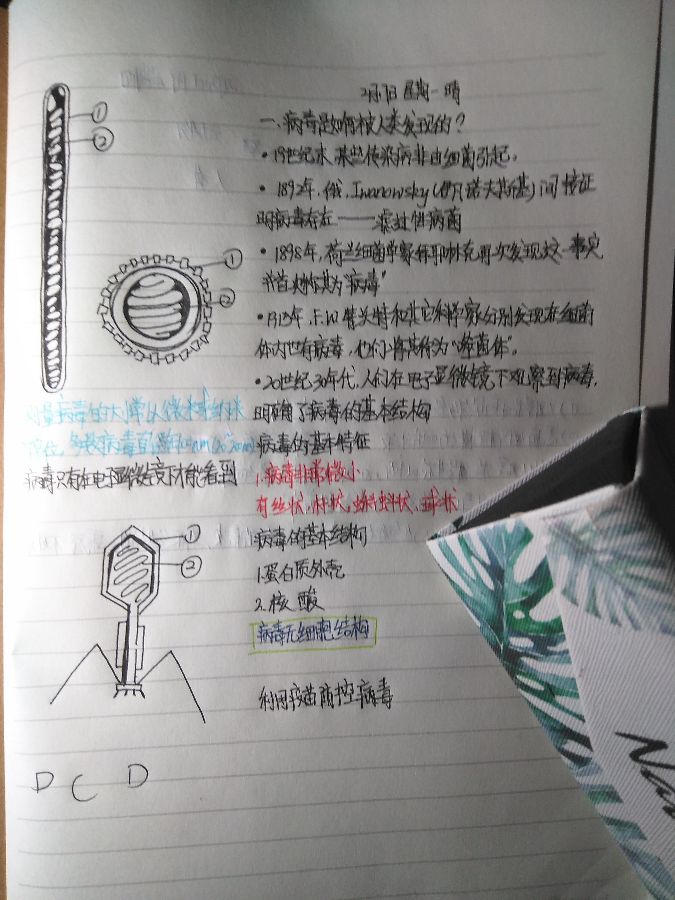 星期一 晴
一、病毒是如何被人类发现的?
• 19世纪末,某些传染病非由细菌引起。
• 1892年,俄,Iwanowsky(伊凡诺夫斯基)间接证
明病毒存在——滤过性病菌
• 1898年,荷兰细菌学家 再次发现这一事实
并首次称其为"病毒"
• 1915年,F.W 特和其它科学家分别发现在细菌
体内也有病毒,他们将其称为"噬菌体"。
• 20世纪30年代,人们在电子显微镜下观察到病毒,
明确了病毒的基本结构
病毒的基本特征
1.病毒非常微小
有丝状,杆状,蝌蚪状,球状
病毒的基本结构
1.蛋白质外壳
2.核酸
病毒无细胞结构
利用疫苗防控病毒
①
②
①
②
测量病毒的大小常以微米或纳米
单位,多数病毒直径
病毒只有在电子显微镜下才能看到
①
②
D C D
Na